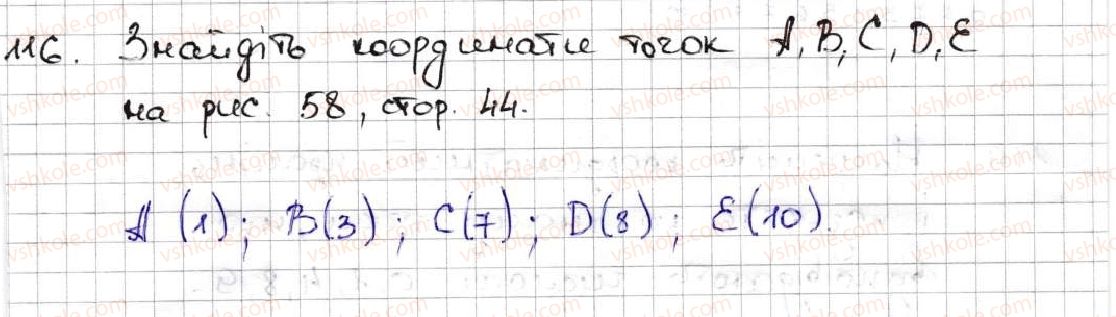 116. Знайдіть координати точок A, B, C, D, E
на рис. 58, стор. 44.
A (1); B(3); C(7); D(8); E(10).